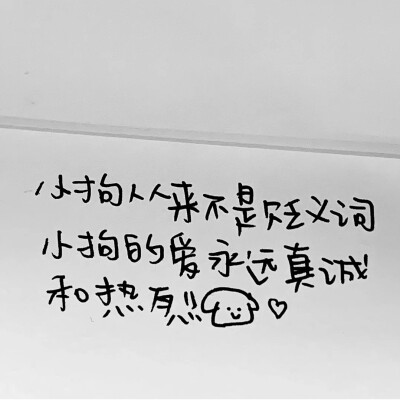 小狗从来不是贬义词
小狗的爱永远真诚
和热烈!!